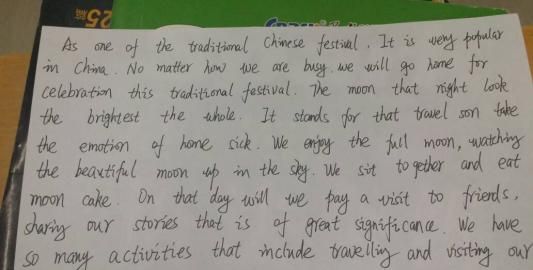 25
As one of the traditional Chinese festival. It is very popular
in China. No matter how we are busy. we will go home for
celebration this traditional festival. The moon that night look
the brightest the whole. It stands for that travel son take
the emotion of home sick. We enjoy the full moon, watching
the beautiful moon up in the sky. We sit together and eat
moon cake. On that day will we pay a visit to friends,
sharing our stories that is of great significance. We have
so many activities that include travelling and visiting our